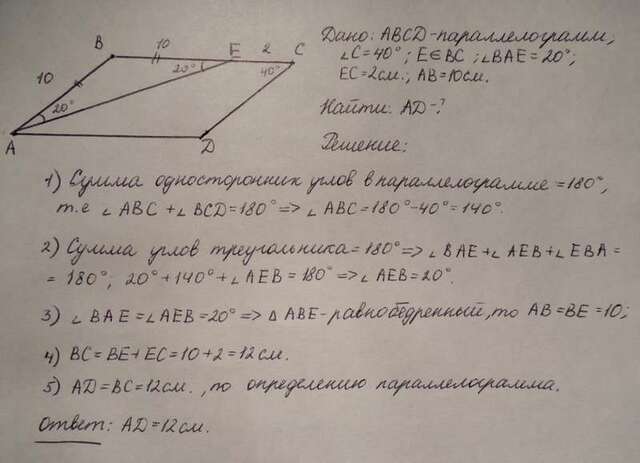 Дано: ABCD-параллелограмм,
∠C=40°; E∈BC; ∠BAE=20°;
EC=2см.; AB=10см.
Найти: AD-?
Решение:
B 10 E 2 C
20° 40°
10
20°
A D
1) Сумма односторонник углов в параллелограмме =180°,
т.е ∠ABC+∠BCD=180°=>∠ABC=180°-40°=140°.
2) Сумма углов треугольника=180°=>∠BAE+∠AEB+∠EBA=
=180°; 20°+140°+∠AEB=180°=>∠AEB=20°.
3) ∠BAE=∠AEB=20°=>△ABE-равнобедренный, то AB=BE=10;
4) BC=BE+EC=10+2=12см.
5) AD=BC=12см., по определению параллелограмма.
Ответ: AD=12см.